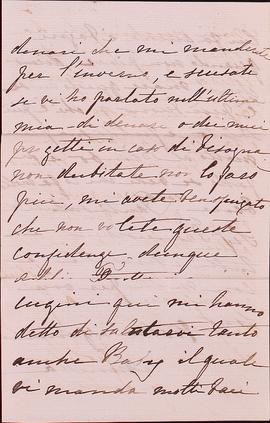 denari che mi manderete
per l'inverno, e scusate
se vi ho parlato nell'ultima
mia di denari o dei miei
progetti in caso di disogna
non dubitate non lo farò
piu, mi avete ben spiegato
che non volete queste
confidenze dunque
cugini qui mi hanno
detto di salutarvi tanto
anche Baby il quale
vi manda molti baci